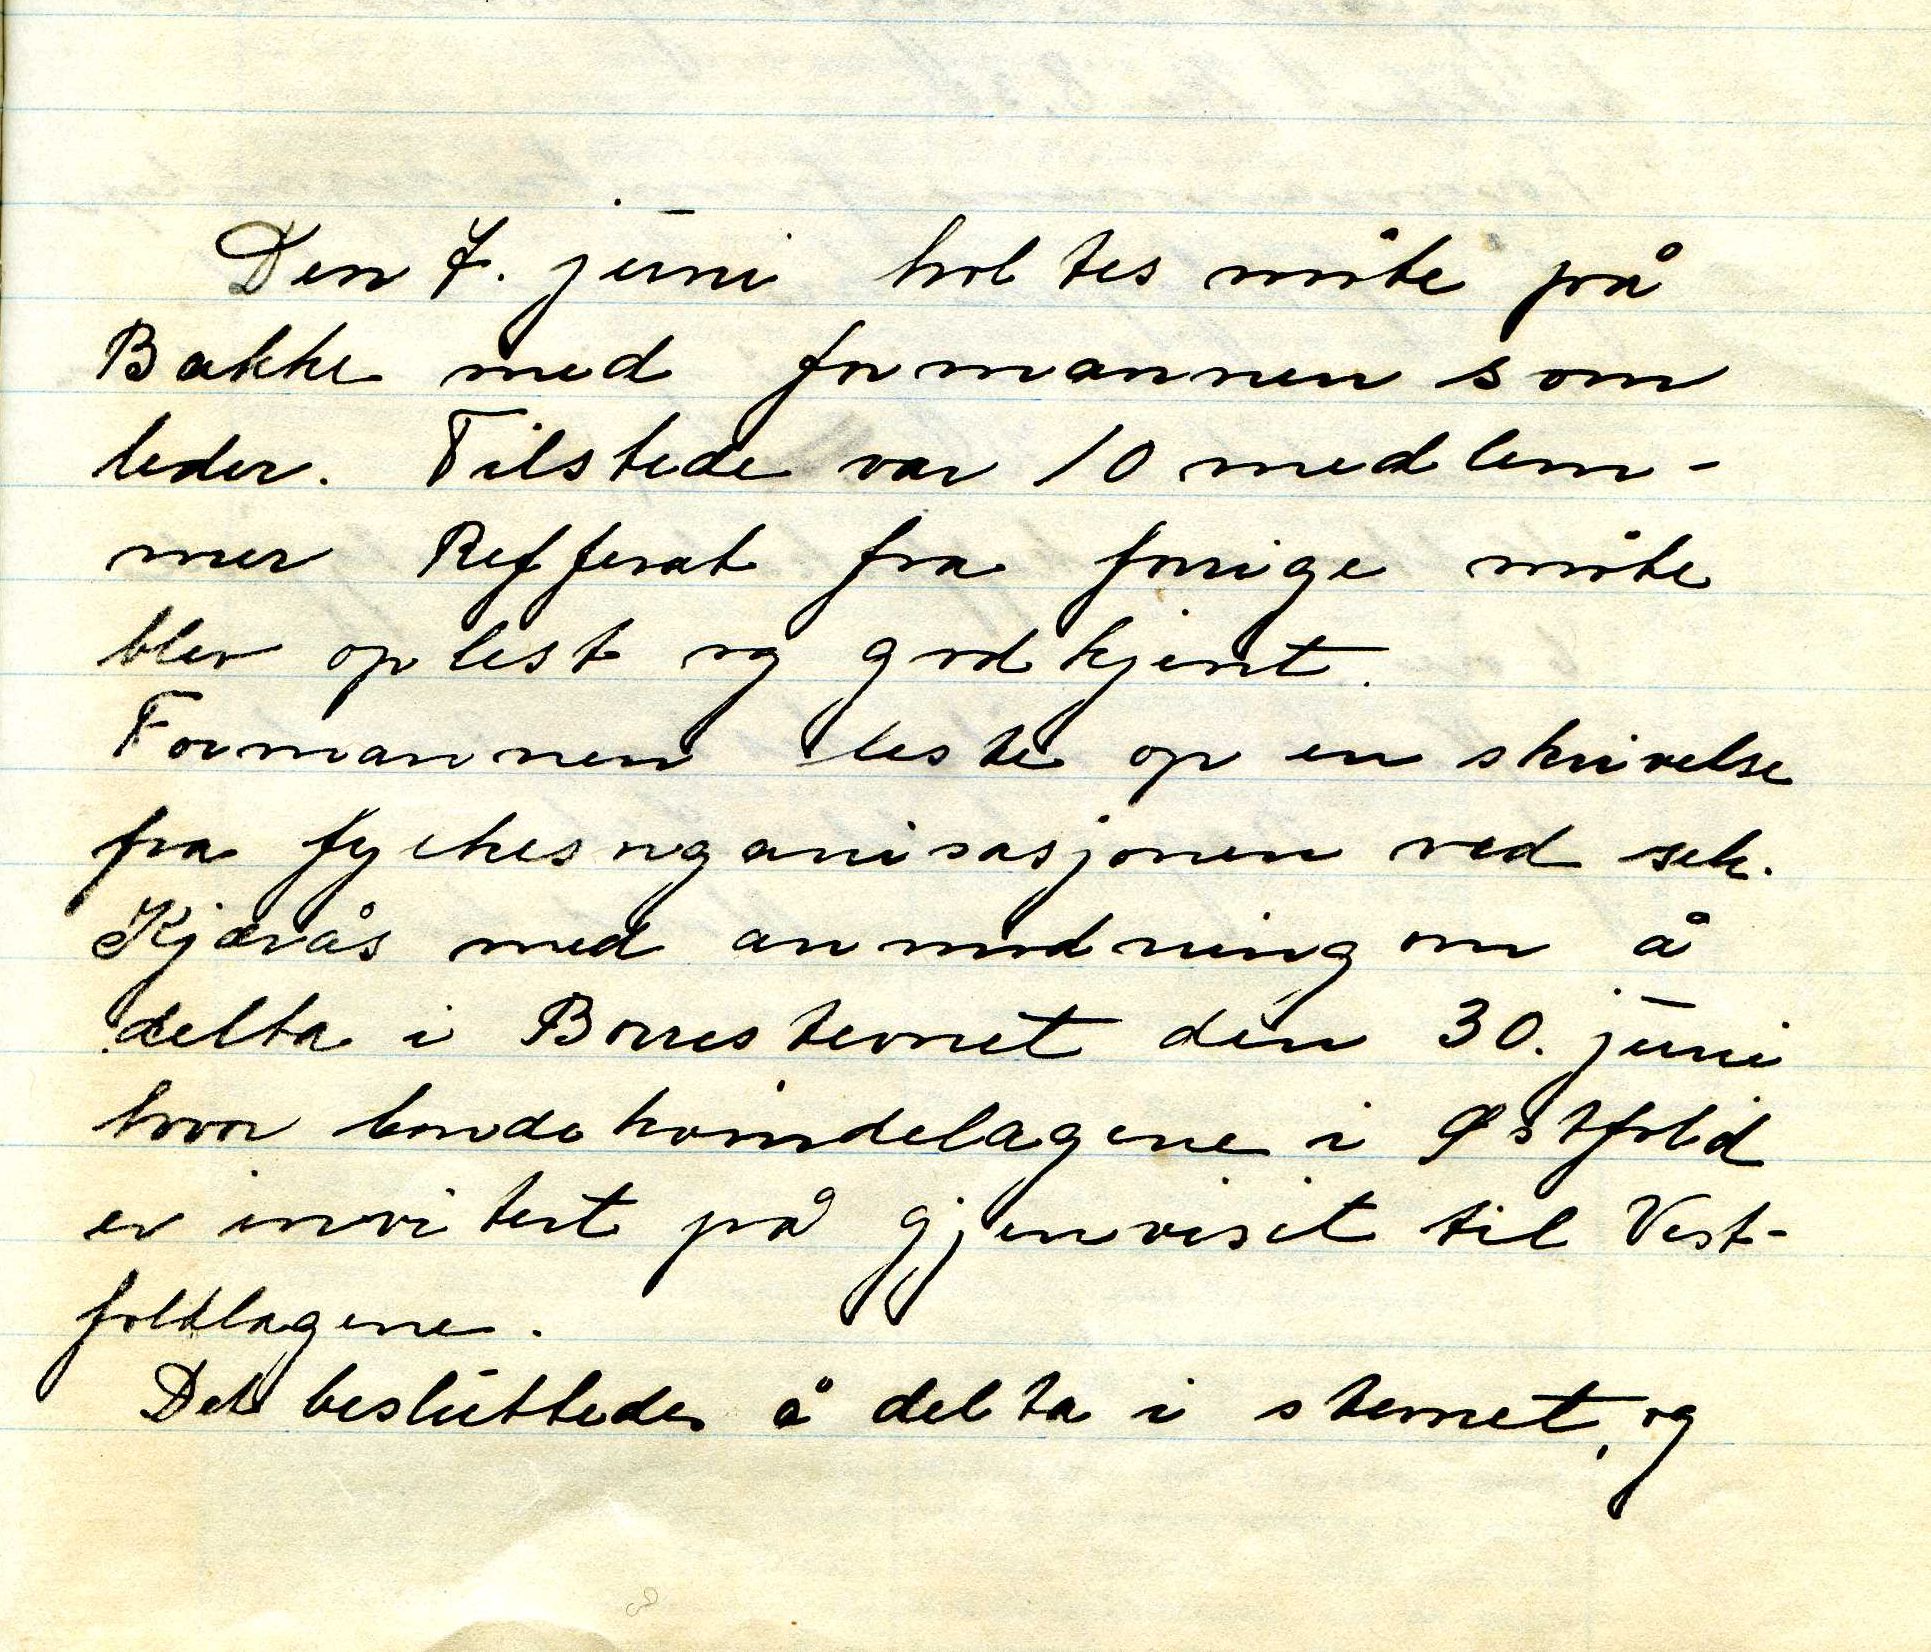 Den 7. juni holtes møte på
Bakke med formannen som
leder. Tilstede var 10 medlem-
mer Refferat fra forrige møte
blev oplest og godkjent.
Formannen leste op en skrivelse
fra fylkesorganisasjonen ved sek.
Kjærås med anmodning om å
delta i Borrestevnet den 30. juni
hvor bondekvindelagene i Østfold
er invitert på gjenvisit til Vest-
foldlagene.
Det besluttedes å delta i stevnet, og